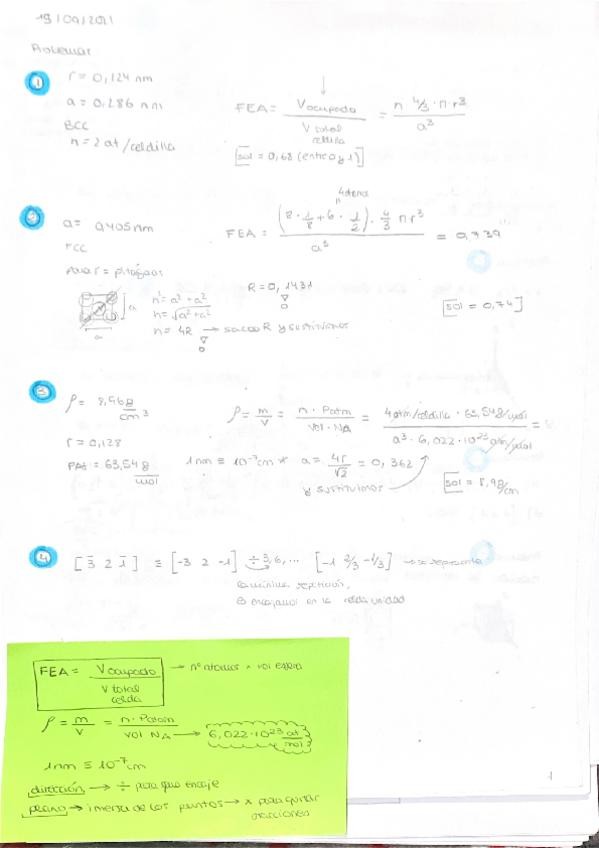 19/09/2021
Problemas
1 r = 0,124 nm
a = 0,286 nm
BCC
n = 2 at/celdilla
FEA = V ocupado / V total celdilla = n 4/3 · π · r³ / a³
[sol = 0,68 (entre 0 y 1)]
2 a = 0,405 nm
FCC
Para r = pitágoras
4 átomos
FEA = (8 · 1/8 + 6 · 1/2) · 4/3 π r³ / a³ = 0,739
a
a
h² = a² + a²
h = √a² + a²
h = 4R → saco R y sustituimos
R = 0,1431
[sol = 0,74]
3 ρ = 8,96 g/cm³
r = 0,128
PAt = 63,54 g/mol
ρ = m/v = n · Patm / vol · NA = 4 atm/celdilla · 63,54 g/mol / a³ · 6,022 · 10²³ atm/mol =
1 nm ≡ 10⁻⁷ cm * a = 4r/√2 = 0,362
y sustituimos
[sol = 8,98/cm
4 [3̄ 2 1̄] ≡ [-3 2 -1] ÷ 3, 6, ... [-1 2/3 -1/3] → se representa
encajamos en la celda unidad
FEA = V ocupado / V total celda → nº átomos × vol esfera
ρ = m/v = n · Patom / vol NA → 6,022 · 10²³ at/mol
1 nm ≡ 10⁻⁷ cm
dirección → ÷ para que encaje
plano → inversa de los puntos → × para quitar fracciones
1